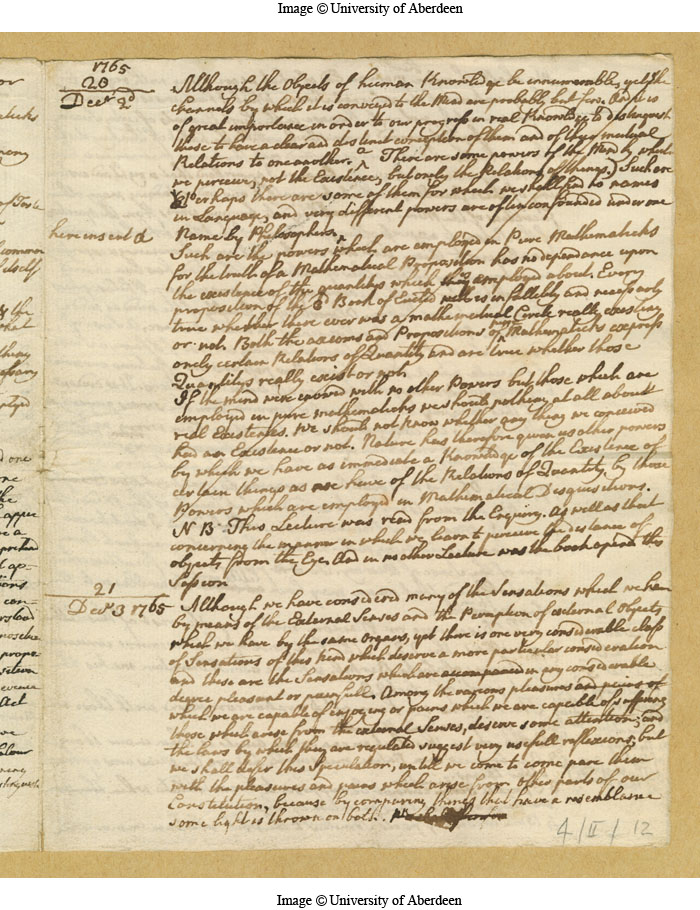 Image © University of Aberdeen
1765
20
Decr 2d
Although the Objects of human Knowledge be innumerable, yet the
channels by which it is conveyed to the Mind are probably but few. And it is
of great importance in order to our progress in real Knowledge to distinguish
those to have a clear and distinct conception of them and of their mutual
Relations to one another. There are some powers of the Mind by which
we perceive, not the Existence, but only the Relations of things. Such are
perhaps there are some of them for which we shall find no names
in Language, and very different powers are often confounded under one
here insert a
Name by Philosophers.
Such are the powers which are employed in Pure Mathematicks
for the truth of a Mathematical Proposition has no dependance upon
the existence of the quantitys which employed about. Every
proposition of the 3d Book of Euclid is infallibly and necessarily
true whether there ever was a mathematical Circle really existing
or not. Both the axioms and Propositions of pure Mathematicks express
onely certain Relations of Quantity and are true whether those
Quantitys really exist or not.
If the mind were endowed with no other Powers but those which are
employed in pure mathematicks we should nothing at all about
real Existences. We should not know whether any thing we conceived
had an Existence or not. Nature has therefore given us other powers
by which we have as immediate a Knowledge of the Existence of
certain things as we have of the Relations of Quantity, by those
Powers which are employed in Mathematical Disquisitions.
N B This Lecture was read from the Enquiry. As well as that
concerning the manner in which we learn to perceive the distance of
objects from the Eye. And in no other Lecture was the book opend this
Session
21
Decr 3 1765
Although we have considered many of the Sensations which we have
by means of the External Senses and the Perception of external Objects
which we have by the same organs, yet there is one very considerable class
of Sensations of this kind which deserve a more particular consideration
and these are the Sensations which are accompanied in any considerable
degree pleasant or painfull. Among the various pleasures and pains of
which we are capable of enjoying or pains which we are capable of suffering
those which arise from the external Senses, deserve some attention; and
the laws by which they are regulated suggest very usefull reflexions; but
we shall defer this Speculation, untill we come to compare them
with the pleasures and pains which arise from other parts of our
Constitution, because by comparing things that have a resemblance
some light is thrown on both.
4/II/12
Image © University of Aberdeen